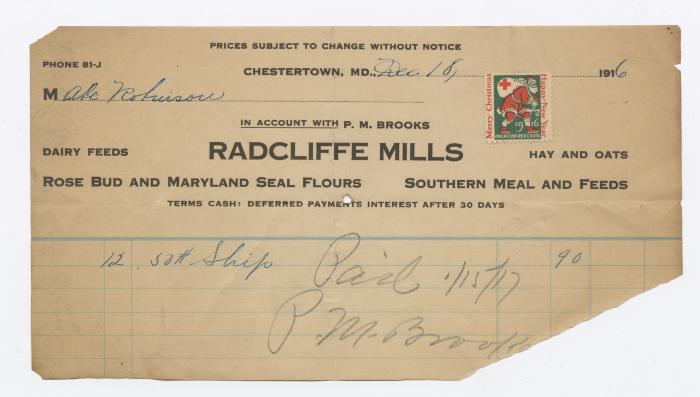 PRICES SUBJECT TO CHANGE WITHOUT NOTICE
PHONE 81-J
CHESTERTOWN, MD., Dec 18, 1916
M Abe Robinson
Merry Christmas
Happy New Year
1916
AMERICAN RED CROSS
IN ACCOUNT WITH P. M. BROOKS
DAIRY FEEDS RADCLIFFE MILLS HAY AND OATS
ROSE BUD AND MARYLAND SEAL FLOURS SOUTHERN MEAL AND FEEDS
TERMS CASH: DEFERRED PAYMENTS INTEREST AFTER 30 DAYS
12 50# Ship 90
Paid 1/15/17
P M Brooks